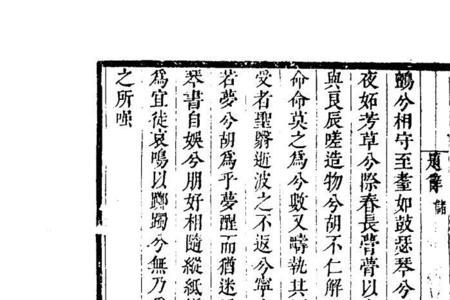 題辭
鶼兮相守至耋如鼓瑟琴兮
夜妬芳草兮際春長菅菅以
與良辰嗟造物兮胡不仁解
命命莫之爲兮數又疇執其
受者聖翳逝波之不返兮寧
若夢兮胡爲乎夢醒而猶迷
琴書自娛兮朋好相隨縱紙
爲宜徒哀鳴以躑躅兮無乃
之所嗤